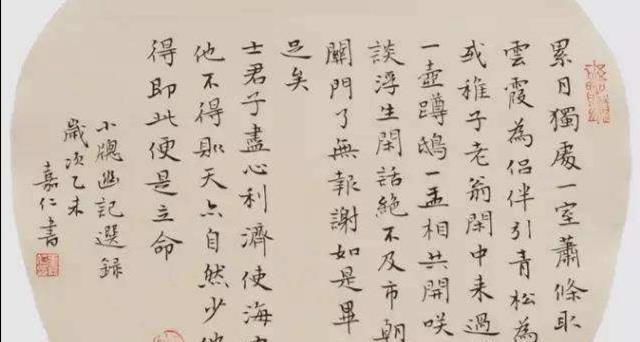 累月獨處一室蕭條取
雲霞為侶伴引青松為
或稚子老翁閑中来過
一壺蹲鴟一盂相共開咲
談浮生閑話絶不及市朝
關門了無報謝如是畢
足矣
士君子盡心利濟使海
他不得則天亦自然少
得即此便是立命
小牕幽記選録
歲次乙未
嘉仁書